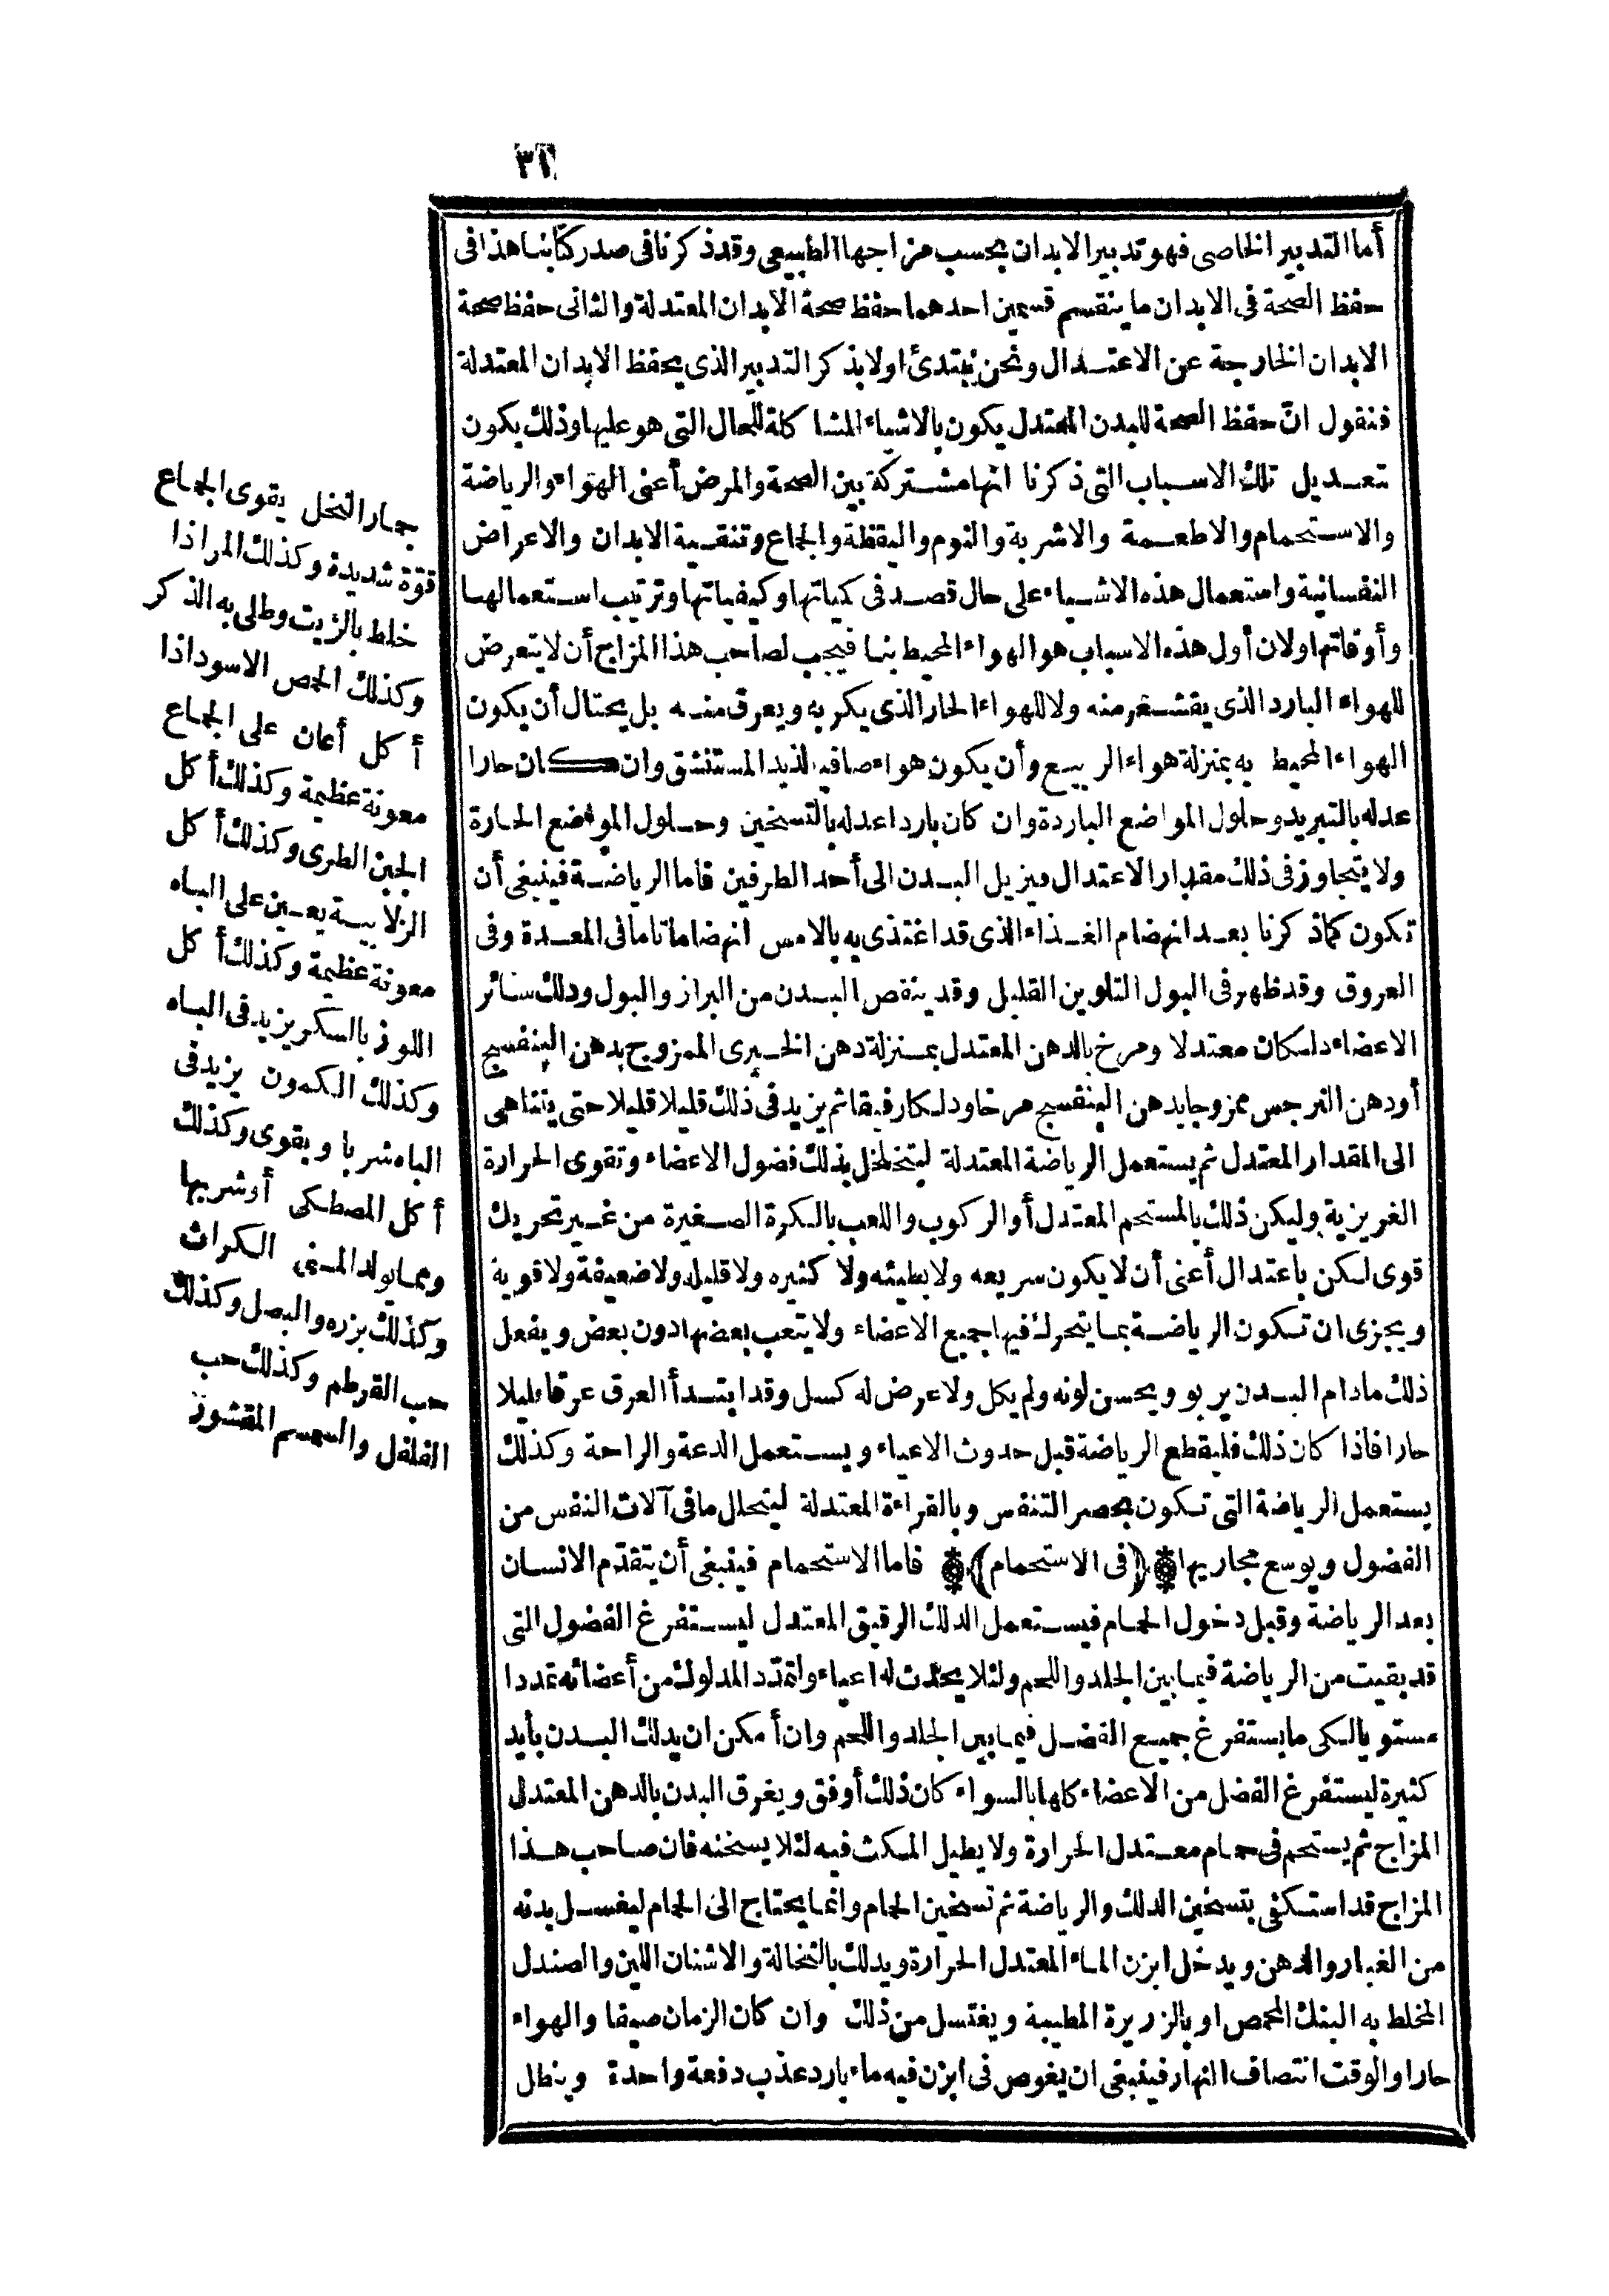 ٣١
أما التدبير الخاصى فهو تدبير الابدان بحسب مزاجها الطبيعى وقد ذكرنا فى صدر كتابنا هذا فى
حفظ الصحة فى الابدان ما ينقسم قسمين احدهما حفظ صحة الابدان المعتدلة والثانى حفظ صحة
الابدان الخارجة عن الاعتدال ونحن نبتدئ اولا بذكر التدبير الذى يحفظ الابدان المعتدلة
فنقول انّ حفظ الصحة للبدن المعتدل يكون بالاشياء المشاكلة للحال التى هو عليها وذلك يكون
تعديل تلك الاسباب التى ذكرنا انها مشتركة بين الصحة والمرض أعنى الهواء والرياضة
والاستحمام والاطعمة والاشربة والنوم واليقظة والجماع وتنقية الابدان والاعراض
النفسانية واستعمال هذه الاشياء على حال قصد فى كمياتها وكيفياتها وترتيب استعمالها
وأوقاتها ولان أول هذه الاسباب هو الهواء المحيط بنا فيجب لصاحب هذا المزاج أن لا يتعرض
للهواء البارد الذى يقشعر منه ولا للهواء الحار الذى يكر به ويعرق منه بل يحتال أن يكون
الهواء المحيط به بمنزلة هواء الربيع وأن يكون هواء صافيا لذيذ المستنشق وان كان حارا
عدله بالتبريد وحلول المواضع الباردة وان كان باردا عدله بالتسخين وحلول المواضع الحارة
ولا يتجاوز فى ذلك مقدار الاعتدال فيزيل البدن الى أحد الطرفين فاما الرياضة فينبغى أن
تكون كما ذكرنا بعد انهضام الغذاء الذى قد اغتذى به بالامس انهضاما تاما فى المعدة وفى
العروق وقد ظهر فى البول التلوين القليل وقد ينقص البدن من البراز والبول ودلك سائر
الاعضاء دلكا معتدلا ومرخ بالدهن المعتدل بمنزلة دهن الخيرى الممزوج بدهن البنفسج
أودهن النرجس ممزوجا بدهن البنفسج مرخا ودلكا رفيقا ثم يزيد فى ذلك قليلا قليلا حتى يتناهى
الى المقدار المعتدل ثم يستعمل الرياضة المعتدلة ليتخلخل بذلك فضول الاعضاء وتقوى الحرارة
الغريزية وليكن ذلك بالمستحم المعتدل أو الركوب واللعب بالكرة الصغيرة من غير تحريك
قوى لكن باعتدال أعنى أن لا يكون سريعه ولا بطيئه ولا كثيره ولا قليله ولا ضعيفة ولا قوية
ويجزى ان تكون الرياضة بما يتحرك فيها جميع الاعضاء ولا يتعب بعضها دون بعض ويفعل
ذلك مادام البدن يربو ويحسن لونه ولم يكل ولا عرض له كسل وقد ابتدأ العرق عرقا قليلا
حارا فاذا كان ذلك فليقطع الرياضة قبل حدوث الاعياء ويستعمل الدعة والراحة وكذلك
يستعمل الرياضة التى تكون بحصر التنفس وبالقراءة المعتدلة ليتحلل ما فى آلات النفس من
الفضول ويوسع مجاريها (فى الاستحمام) فاما الاستحمام فينبغى أن يتقدّم الانسان
بعد الرياضة وقبل دخول الحمام فيستعمل الدلك الرقيق المعتدل ليستفرغ الفضول التى
قد بقيت من الرياضة فيما بين الجلد واللحم ولئلا يحدث له اعياء ولتمدّد المدلوك من أعضائه تمددا
مستويا لكى ما يستفرغ جميع الفضل فيما بين الجلد واللحم وان أمكن ان يدلك البدن بأيد
كثيرة ليستفرغ الفضل من الاعضاء كلها بالسواء كان ذلك أوفق ويغرق البدن بالدهن المعتدل
المزاج ثم يستحم فى حمام معتدل الحرارة ولا يطيل المكث فيه لئلا يسخنه فان صاحب هذا
المزاج قد استكفى بتسخين الدلك والرياضة ثم تسخين الحمام وانما يحتاج الى الحمام ليغسل بدنه
من الغبار والدهن ويدخل ابزن الماء المعتدل الحرارة ويدلك بالنخالة والاشنان اللين والصندل
المخلط به البنك المحمص او بالزريرة المطيبة ويغتسل من ذلك وان كان الزمان صيفا والهواء
حارا والوقت انتصاف النهار فينبغى ان يغوص فى ابزن فيه ماء بارد عذب دفعة واحدة وينطل
جمار النخل يقوى الجماع
قوّة شديدة وكذلك المر اذا
خلط بالزيت وطلى به الذكر
وكذلك الحمص الاسود اذا
أكل أعان على الجماع
معونة عظيمة وكذلك أكل
الجبن الطرى وكذلك أكل
الزلابية يعين على الباه
معونة عظيمة وكذلك أكل
اللوز بالسكر يزيد فى الباه
وكذلك الكمون يزيد فى
الباه شربا ويقوى وكذلك
أكل المصطكى أو شربها
ومما يولد المنى الكراث
وكذلك بزره والبصل وكذلك
حب القرطم وكذلك حب
الفلفل والسمسم المقشور